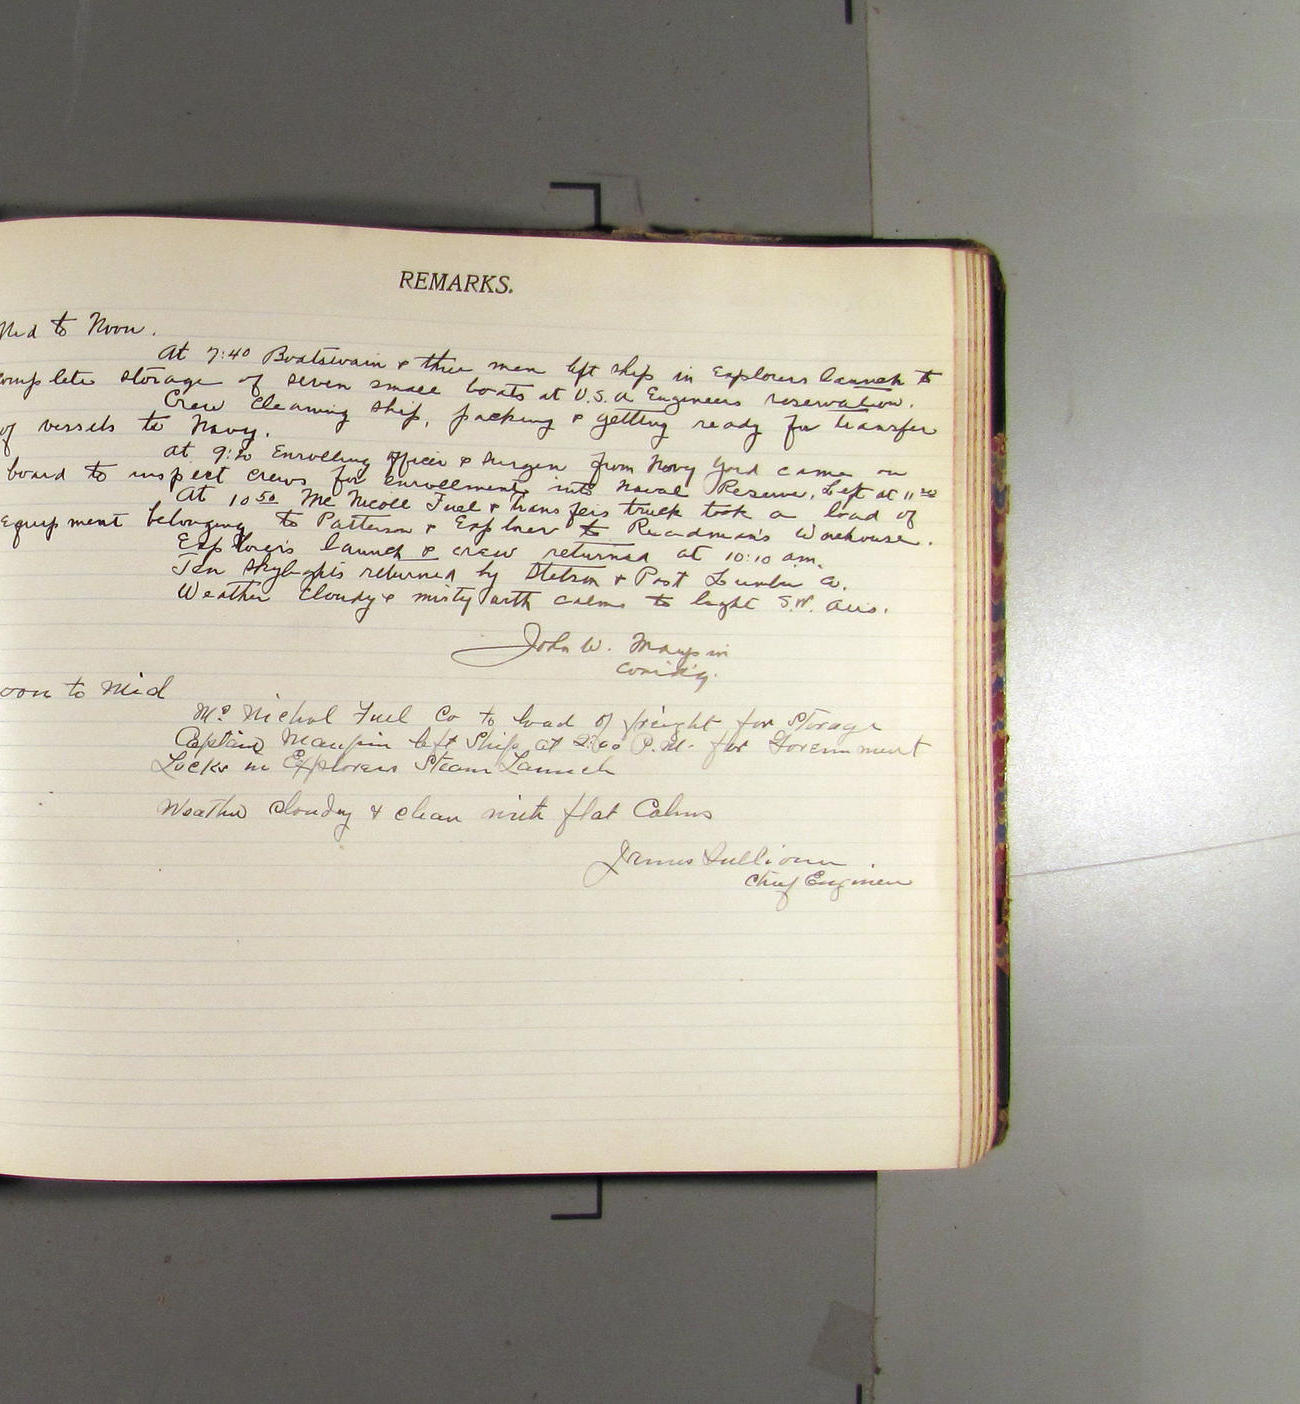 REMARKS.
Mid to Noon.
At 7:40 Boatswain & three men left ship in Explorers launch to
complete storage of seven small boats at U.S.A Engineers reservation.
Crew cleaning ship, packing & getting ready for transfer
of vessels to Navy.
At 9:20 Enrolling officer & surgeon from Navy Yard came on
board to inspect crews for enrollment into Naval Reserve. Left at 11
At 10 50 Mc Nicoll Fuel & Transfers truck took a load of
equipment belonging to Patterson & Explorer to Readman's Warehouse.
Explorer's launch & crew returned at 10:10 am.
Ten skylights returned by Stetson & Post Lumber Co.
Weather Cloudy & misty with calms to light S.W. airs.
John W. Maupin
Comd'g.
oon to Mid
Mc Nichol Fuel Co to load of freight for Storage
Captain Maupin left Ship at 2:00 P.M. for Government
Locks in Explorers Steam Launch
Weather Cloudy & clear with flat Calms
James Sullivan
Chief Engineer